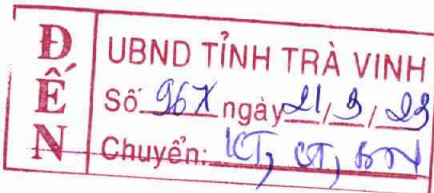 ĐẾN
UBND TỈNH TRÀ VINH
Số 967 ngày 21/3/23
Chuyển: KT,